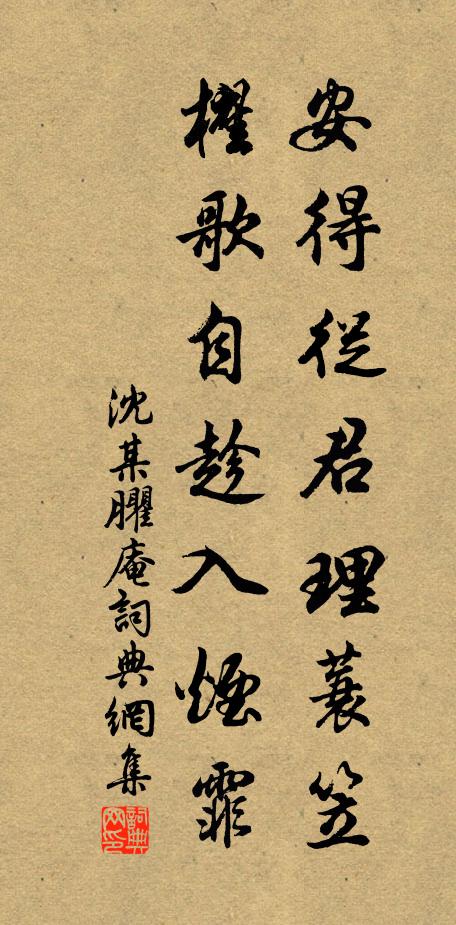 安得從君理蓑笠
櫂歌自趁入煙霏
沈某臞庵詞典網集
詞典網印